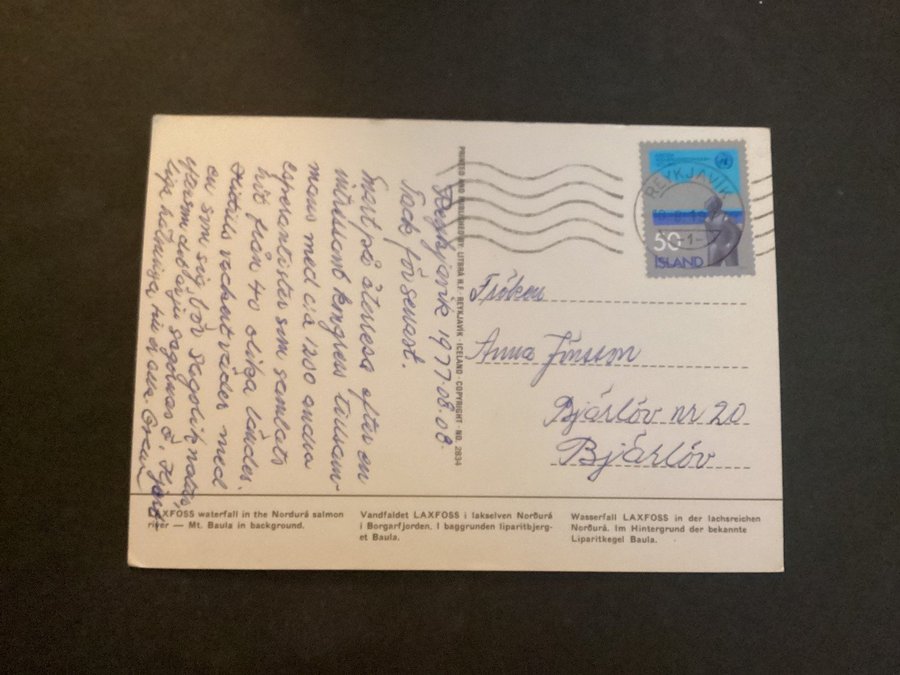 Reykjavik 1977.08.08.
Tack för senast.
Snart på återresa efter en
intressant kongress tillsam-
mans med c:a 1200 andra
esperantister som samlats
hit från 40 olika länder.
Hittills vackert väder med
en som
sagolik natur,
sagornas ö.
liga hälsningar till er alla.
PRINTED AND PUBLISHED BY: LITBRÁ H.F. · REYKJAVÍK · ICELAND · COPYRIGHT · NO. 2834
REYKJAVÍK
50
ÍSLAND
Fröken
Anna Jönsson
Bjärlöv nr 20
Bjärlöv
LAXFOSS waterfall in the Nordurá salmon
river — Mt. Baula in background.
Vandfaldet LAXFOSS i lakselven Norðurá
i Borgarfjorden. I baggrunden liparitbjerg-
et Baula.
Wasserfall LAXFOSS in der lachsreichen
Norðurá. Im Hintergrund der bekannte
Liparitkegel Baula.